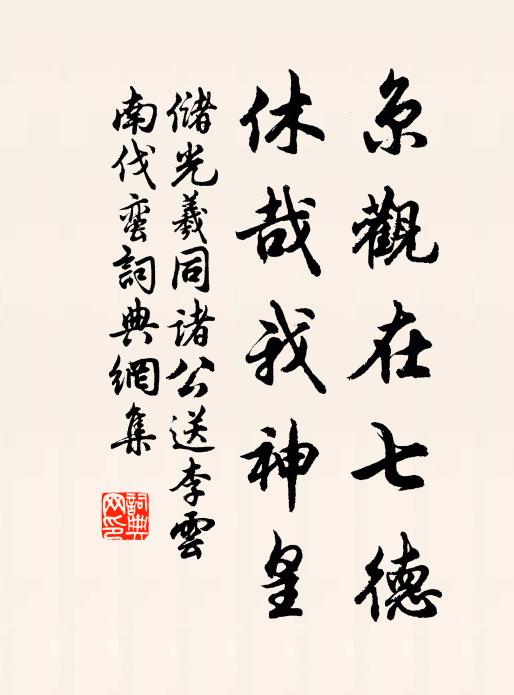 京觀在七德
休哉我神皇
儲光羲同諸公送李雲
南伐蠻詞典網集
詞典
网印